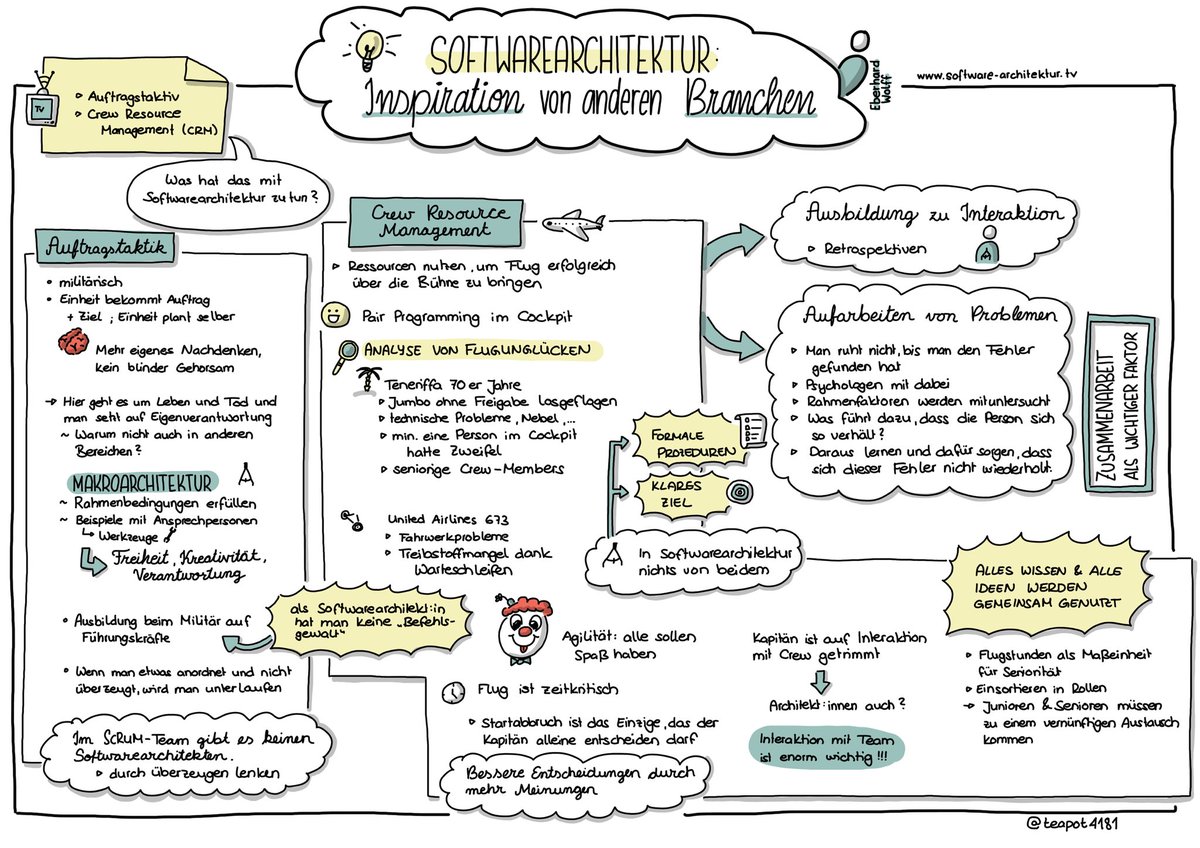 SOFTWAREARCHITEKTUR:
Inspiration von anderen Branchen
Eberhard
Wolff
www.software-architektur.tv
TV
▹ Auftragstaktiv
▹ Crew Resource
Management (CRM)
Was hat das mit
Softwarearchitektur zu tun?
Auftragstaktik
• militärisch
• Einheit bekommt Auftrag
+ Ziel ; Einheit plant selber
Mehr eigenes Nachdenken,
kein blinder Gehorsam
→ Hier geht es um Leben und Tod und
man setzt auf Eigenverantwortung
~ Warum nicht auch in anderen
Bereichen?
MAKROARCHITEKTUR
~ Rahmenbedingungen erfüllen
~ Beispiele mit Ansprechpersonen
↳ Werkzeuge
Freiheit, Kreativität,
Verantwortung
• Ausbildung beim Militär auf
Führungskräfte
• Wenn man etwas anordnet und nicht
überzeugt, wird man unterlaufen
als Softwarearchitekt:in
hat man keine „Befehls-
gewalt"
Im SCRUM-Team gibt es keinen
Softwarearchitekten.
▹ durch überzeugen lenken
Crew Resource
Management
▹ Ressourcen nutzen, um Flug erfolgreich
über die Bühne zu bringen
Pair Programming im Cockpit
ANALYSE VON FLUGUNGLÜCKEN
Teneriffa 70er Jahre
▹ Jumbo ohne Freigabe losgeflogen
▹ technische Probleme, Nebel,...
▹ min. eine Person im Cockpit
hatte Zweifel
▹ seniorige Crew-Members
United Airlines 673
▹ Fahrwerkprobleme
▹ Treibstoffmangel dank
Warteschleifen
Agilität: alle sollen
Spaß haben
Flug ist zeitkritisch
▹ Startabbruch ist das Einzige, das der
Kapitän alleine entscheiden darf
Bessere Entscheidungen durch
mehr Meinungen
FORMALE
PROZEDUREN
KLARES
ZIEL
In Softwarearchitektur
nichts von beidem
Ausbildung zu Interaktion
▹ Retrospektiven
Aufarbeiten von Problemen
▹ Man ruht nicht, bis man den Fehler
gefunden hat
▹ Psychologen mit dabei
▹ Rahmenfaktoren werden mituntersucht
▹ Was führt dazu, dass die Person sich
so verhält?
▹ Daraus lernen und dafür sogen, dass
sich dieser Fehler nicht wiederholt.
ZUSAMMENARBEIT
ALS WICHTIGER FAKTOR
Kapitän ist auf Interaktion
mit Crew getrimmt
Architekt:innen auch?
Interaktion mit Team
ist enorm wichtig!!!
ALLES WISSEN & ALLE
IDEEN WERDEN
GEMEINSAM GENUTZT
▹ Flugstunden als Maßeinheit
für Seniorität
▹ Einsortieren in Rollen
→ Junioren & Senioren müssen
zu einem vernünftigen Austausch
kommen
@teapot4181